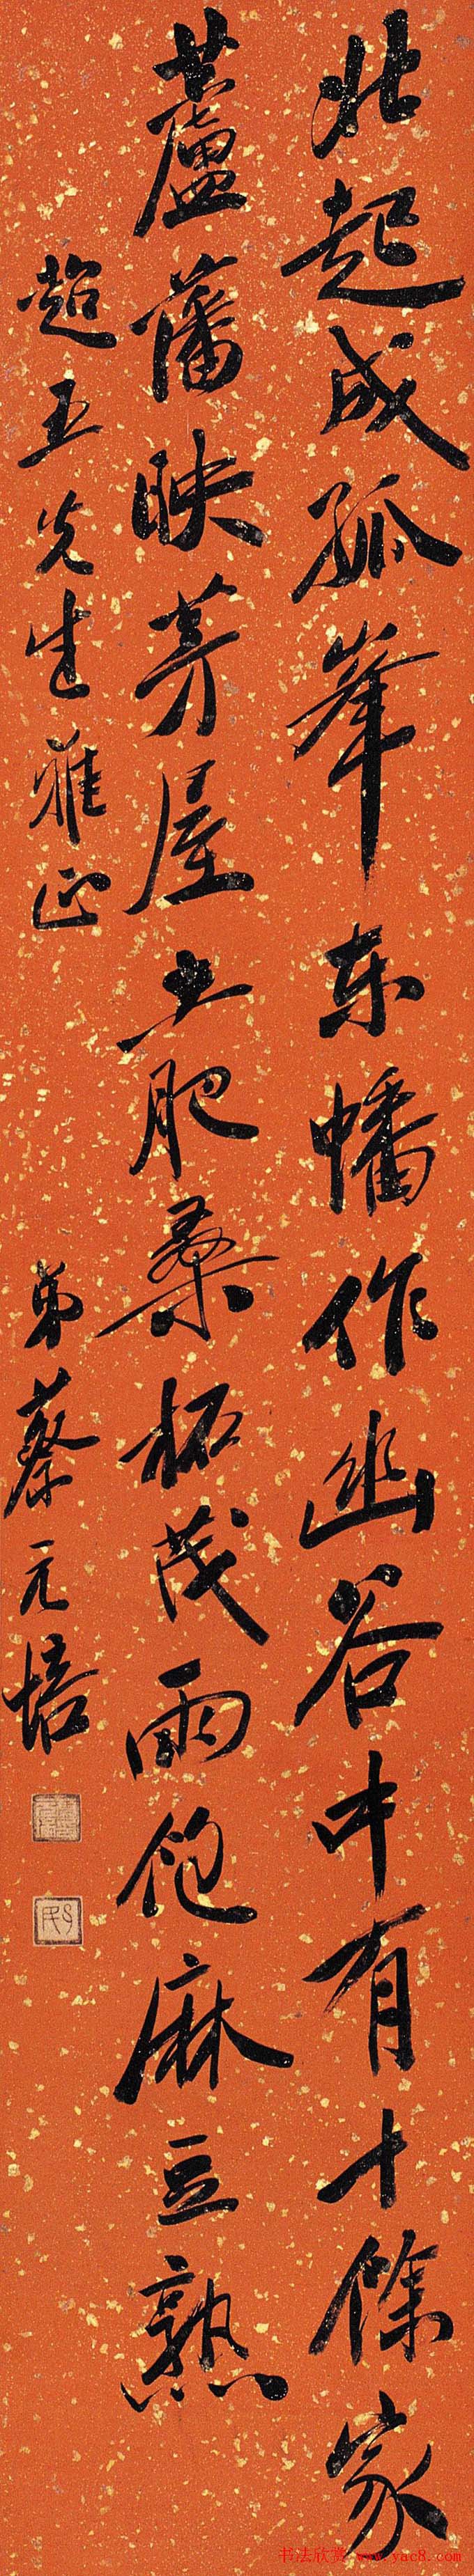 北起成孤峯東幡作幽谷中有十餘家
蘆藩映茅屋土肥桑柘茂雨飽麻豆熟
超五先生雅正
弟蔡元培
孑民
书法欣赏 www.yac8.com